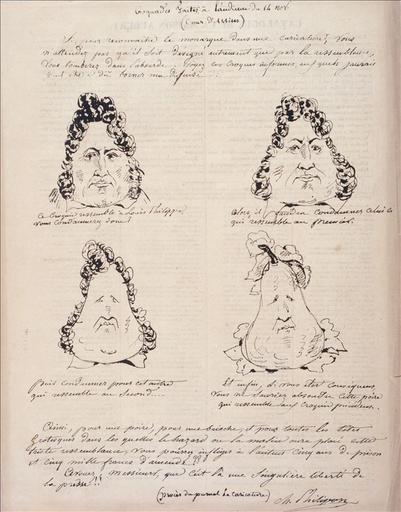 Croquades faites à l'audience du 14 nov.
(Cour d'Assises)
Si, pour reconnaître le monarque dans une caricature, vous
n'attendez pas qu'il soit désigné autrement que par la ressemblance,
vous tomberez dans l'absurde. Voyez ces croquis informes, auxquels j'aurais
dû borner ma défense.
Ce croquis ressemble à Louis Philippe,
vous condamnerez donc?
Alors il faudra condamner celui-ci
qui ressemble au premier.
Puis condamner cet autre
qui ressemble au second...
Et enfin, si vous êtes conséquens,
vous ne sauriez absoudre cette poire
qui ressemble aux croquis précédens.
Ainsi, pour une poire, pour une brioche, et pour toutes les têtes
grotesques dans lesquelles le hazard ou la malice aura placé cette
triste ressemblance, vous pourrez infliger à l'auteur cinq ans de prison
et cinq mille francs d'amende??
Avouez, Messieurs, que c'est là une singulière liberté de
la presse!!
(procès du journal la Caricature)
Ch. Philipon